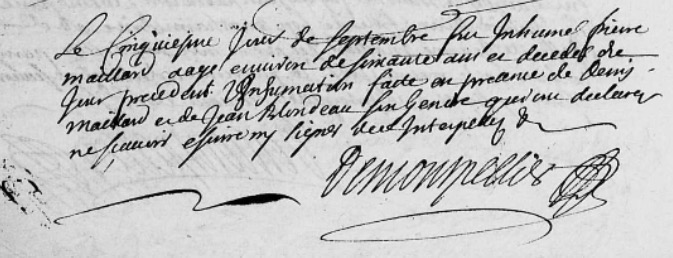 Le Cinquiesme Jour de septembre fut Inhumé pierre
maillard aagé environ de seixante ans et decedé du
Jour precedent l'Inhumation faite en presence de Denis
maillard et de Jean Blondeau son Gendre qui ont declarez
ne scauoir escrire ny signer de ce Interpellez &
Demonpellier